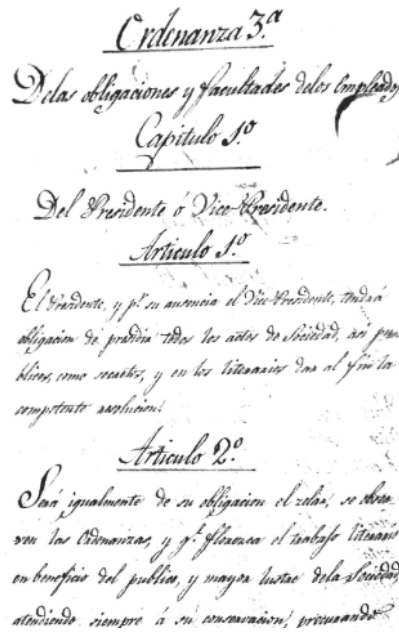 Ordenanza 3.ª
Delas obligaciones y facultades delos Empleados
Capitulo 1.º
Del Presidente ó Vice-Presidente.
Articulo 1.º
El Presidente, y p.r su ausencia el Vice-Presidente, tendrá
obligacion de presidir todos los actos de Sociedad, asi pu-
blicos, como secretos, y en los literarios dar al fin la
competente resolucion.
Articulo 2.º
Será igualmente de su obligacion el zelar, se obser-
ven las Ordenanzas, y q.e florezca el trabajo literario
en beneficio del publico, y mayor lustre dela Sociedad,
atendiendo siempre á su conservacion, procurando